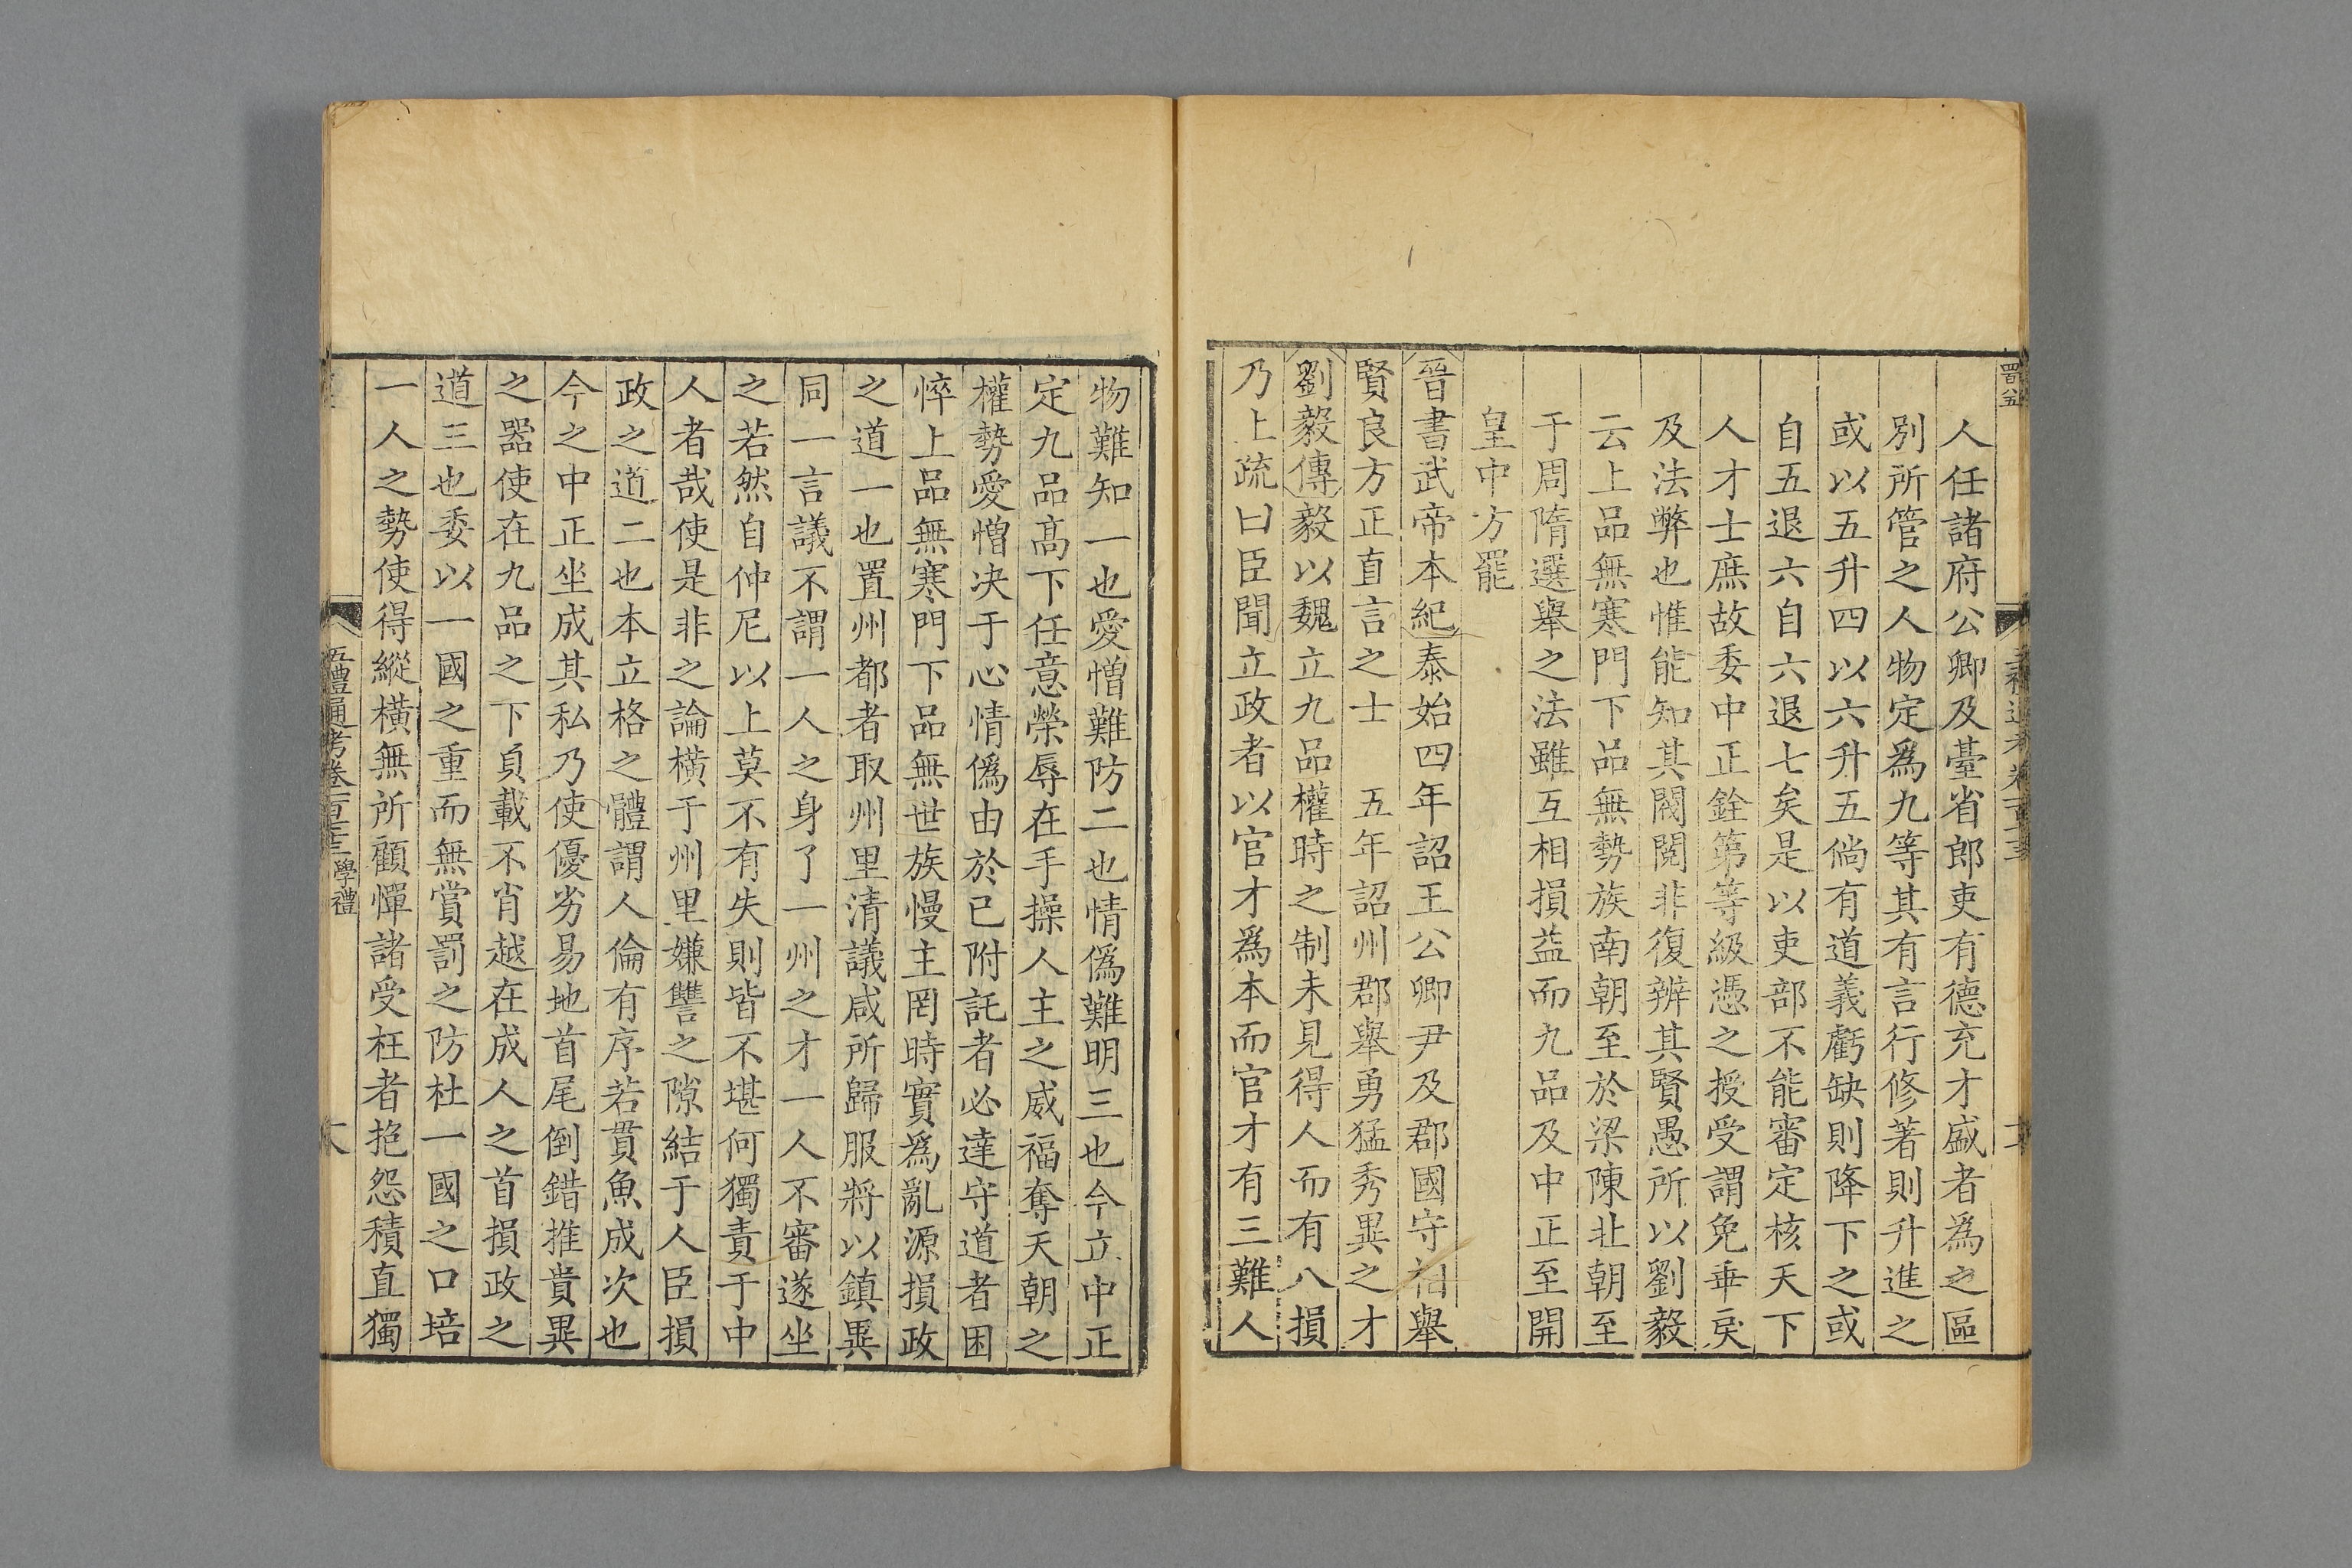 人任諸府公卿及臺省郎吏有德充才盛者爲之區
別所管之人物定爲九等其有言行修著則升進之
或以五升四以六升五倘有道義虧缺則降下之或
自五退六自六退七矣是以吏部不能審定核天下
人才士庶故委中正銓第等級憑之授受謂免乖戾
及法弊也惟能知其閥閱非復辨其賢愚所以劉毅
云上品無寒門下品無勢族南朝至於梁陳北朝至
于周隋選舉之法雖互相損益而九品及中正至開
皇中方罷
晉書武帝本紀泰始四年詔王公卿尹及郡國守相舉
賢良方正直言之士 五年詔州郡舉勇猛秀異之才
劉毅傳毅以魏立九品權時之制未見得人而有八損
乃上疏曰臣聞立政者以官才爲本而官才有三難人
物難知一也愛憎難防二也情僞難明三也今立中正
定九品高下任意榮辱在手操人主之威福奪天朝之
權勢愛憎决于心情僞由於已附託者必達守道者困
悴上品無寒門下品無世族慢主罔時實爲亂源損政
之道一也置州都者取州里清議咸所歸服將以鎮異
同一言議不謂一人之身了一州之才一人不審遂坐
之若然自仲尼以上莫不有失則皆不堪何獨責于中
人者哉使是非之論橫于州里嫌讐之隙結于人臣損
政之道二也本立格之體謂人倫有序若貫魚成次也
今之中正坐成其私乃使優劣易地首尾倒錯推貴異
之器使在九品之下負載不肖越在成人之首損政之
道三也委以一國之重而無賞罰之防杜一國之口培
一人之勢使得縱橫無所顧憚諸受枉者抱怨積直獨
五禮通考卷一百七十三 學禮